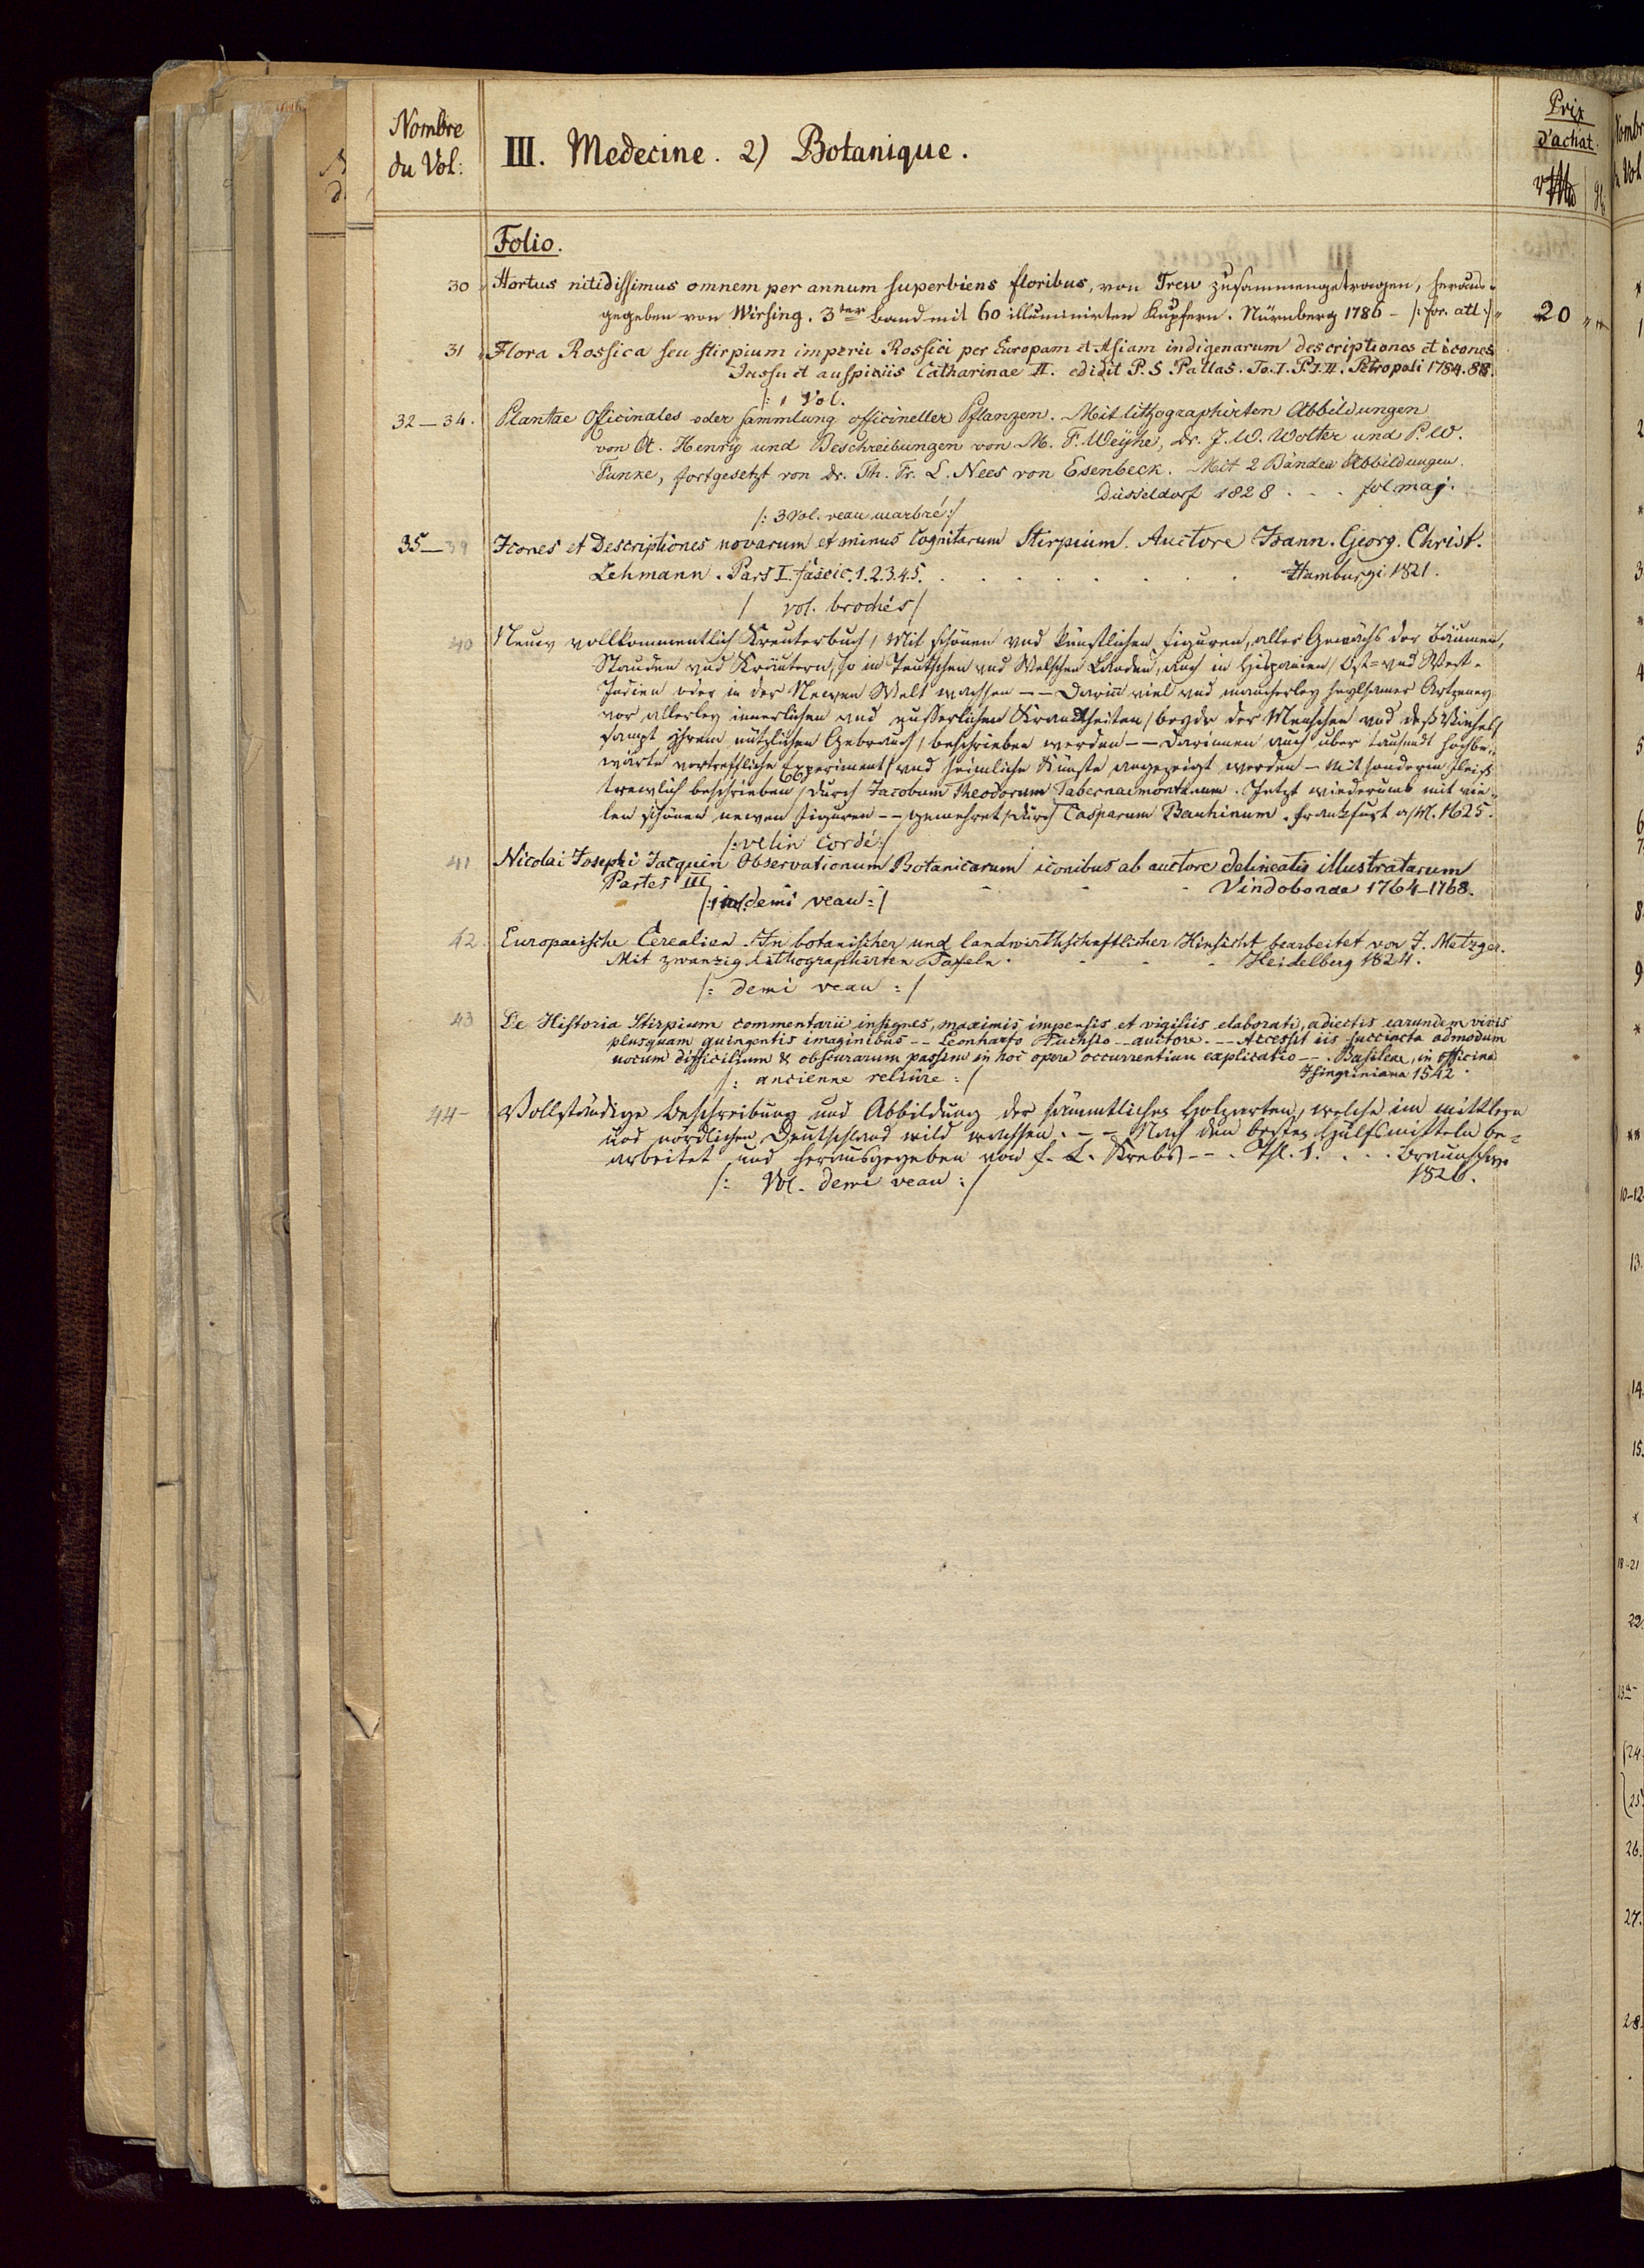 Nombre
du Vol:
III. Medecine. 2) Botanique.
Prix
d'achat.
Folio.
30 Hortus nitidissimus omnem per annum superbiens floribus, von Trew zusammengetragen, heraus-
gegeben von Wirsing. 3ter Band mit 60 illuminirten Kupfern. Nürnberg 1786 - /: for. atl :/ 20
31 Flora Rossica seu stirpium imperii Rossici per Europam et Asiam indigenarum descriptiones et icones
Jussu et auspiciis Catharinae II. edidit P. S. Pallas. To. I. P. I. II. Petropoli 1784. 88.
/: 1 Vol.
32 — 34. Plantae Officinales oder Sammlung officineller Pflanzen. Mit lithographirten Abbildungen
von A. Henry und Beschreibungen von M. F. Weyhe, Dr. J. W. Wolter und P. W.
Funke, fortgesetzt von Dr. Th. Fr. L. Nees von Esenbeck. Mit 2 Bänden Abbildungen.
Düsseldorf 1828 . . . fol maj.
/: 3 Vol. veau marbré :/
35 — 39 Icones et Descriptiones novarum et minus Cognitarum Stirpium. Auctore Joann. Georg. Christ.
Lehmann. Pars I. fascic. 1. 2. 3. 4. 5. . . . . . . . Hamburgi 1821.
/ vol. brochés /
40 Neuw vollkommentlich Kreuterbuch, Mit schönen vnd künstlichen Figuren, aller Gewächs der Bäumen,
Stauden vnd Kräutern, so in Teutschen vnd Welschen Landen, auch in Hispanien, Ost- vnd West-
Indien oder in der Newen Welt wachsen -- Darinn viel vnd mancherley heylsamer Artzeney
vor allerley innerlichen vnd eusserlichen Kranckheiten, beyde der Menschen vnd deß Viehes,
sampt ihrem nützlichen Gebrauch, beschrieben werden -- Darinnen auch über tausendt hochbe-
wärte vortreffliche Experiment, vnd heimliche Künste angezeigt werden - Mit sonderm Fleiß
trewlich beschrieben, durch Jacobum Theodorum Tabernaemontanum. Jetzt wiederumb mit vie-
len schönen newen Figuren -- gemehret, durch Casparum Bauhinum. Franckfurt a/M. 1625.
/: velin cordé :/
41 Nicolai Josephi Jacquin Observationum Botanicarum iconibus ab auctore delineatis illustratarum
Partes III - - - Vindobonae 1764-1768.
/: 1 vol. demi veau :/
42 Europaeische Cerealien. In botanischer und landwirthschaftlicher Hinsicht bearbeitet von J. Metzger.
Mit zwanzig lithographirten Tafeln. - - - Heidelberg 1824.
/: demi veau :/
43 De Historia Stirpium commentarii insignes, maximis impensis et vigiliis elaborati, adiectis earundem vivis
plusquam quingentis imaginibus -- Leonharto Fuchsio -- auctore. -- Accessit iis succincta admodum
uocum difficilium & obscurarum passim in hoc opere occurrentium explicatio --. Basileae, in officina
/: ancienne reliûre :/ Isingriniana 1542.
44 - Vollständige Beschreibung und Abbildung der sämmtlichen Holzarten, welche im mittlern
und nördlichen Deutschland wild wachsen. -- Nach den besten Hülfsmitteln be-
arbeitet und herausgegeben von F. L. Krebs --. Thl. 1. . . . Braunschw.
/: Vol. demi veau :/ 1826.